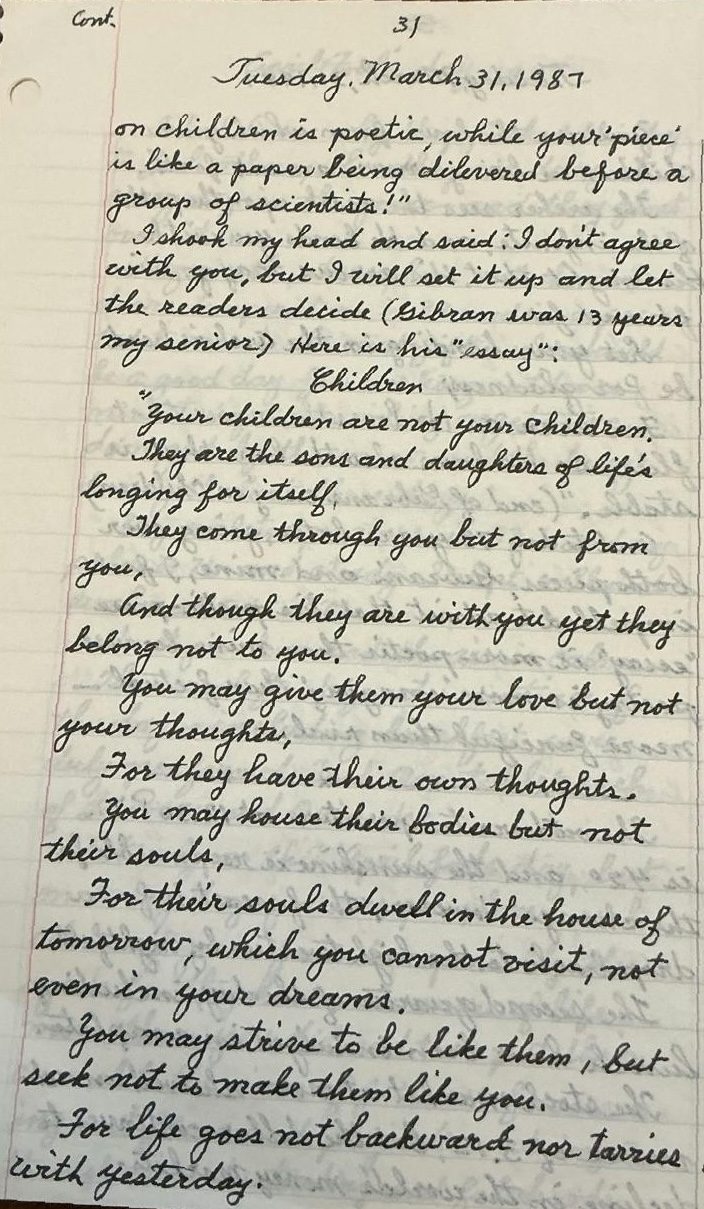 Cont.
31
Tuesday, March 31, 1987
on children is poetic, while your 'piece'
is like a paper being dilevered before a
group of scientists!"
I shook my head and said: I don't agree
with you, but I will set it up and let
the readers decide (Gibran was 13 years
my senior) Here is his "essay":
Children
"Your children are not your children.
They are the sons and daughters of life's
longing for itself.
They come through you but not from
you,
And though they are with you yet they
belong not to you.
You may give them your love but not
your thoughts,
For they have their own thoughts.
You may house their bodies but not
their souls,
For their souls dwell in the house of
tomorrow, which you cannot visit, not
even in your dreams.
You may strive to be like them, but
seek not to make them like you.
For life goes not backward nor tarries
with yesterday.